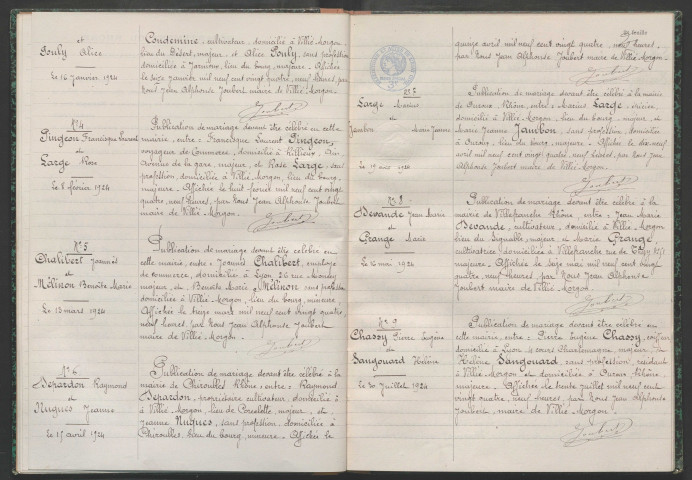 et
Pouly Alice
Le 16 Janvier 1924
Condemine, cultivateur, domicilié à Villié-Morgon
lieu du Désert, majeur, et Alice Pouly, sans profession
domiciliée à Jasnioux, lieu du bourg, majeure. Affichée
le seize janvier mil neuf cent vingt quatre, neuf heures, par
nous Jean Alphonse Joubert maire de Villié-Morgon.
Joubert
N°4
Pingeon Francisque Laurent
et
Large Rose
Le 8 février 1924
Publication de mariage devant être célébré en cette
mairie, entre : Francisque Laurent Pingeon,
voyageur de commerce, domicilié à Rillieux,
Avenue de la gare, majeur, et Rose Large, sans
profession, domiciliée à Villié-Morgon, lieu du bourg,
majeure. Affichée le huit février mil neuf cent vingt
quatre, neuf heures, par nous Jean Alphonse Joubert
maire de Villié-Morgon.
Joubert
N°5
Chalibert Joannès
et
Mélinon Benoîte Marie
Le 13 mars 1924
Publication de mariage devant être célébré en
cette mairie, entre : Joannès Chalibert, employé
de commerce, domicilié à Lyon, 26 rue
majeur, et Benoîte Marie Mélinon sans profession
domiciliée à Villié-Morgon, lieu du bourg, mineure,
Affichée le treize mars mil neuf cent vingt quatre,
neuf heures par nous Jean Alphonse Joubert
maire de Villié-Morgon.
Joubert
N°6
Dérardon Raymond
et
Nugues Jeanne
Le 15 avril 1924
Publication de mariage devant être célébré à la
mairie de Chiroubles Rhône, entre : Raymond
Dérardon, propriétaire cultivateur, domicilié à
à Villié-Morgon, lieu de Corcelette, majeur, et
Jeanne Nugues, sans profession, domiciliée à
Chiroubles, lieu du bourg, mineure. Affichée le
quinze avril mil neuf cent vingt quatre, neuf heures,
par nous Jean Alphonse Joubert maire de Villié-Morgon.
Joubert
N°7
Large Marius
et
Jambon Marie Jeanne
Le 19 avril 1924
Publication de mariage devant être célébré à la mairie
de Rhône, entre : Marius Large,
domicilié à Villié-Morgon, lieu du bourg, majeur, et
Marie Jeanne Jambon, sans profession, domiciliée
à lieu du bourg, majeure. Affichée le dix neuf
avril mil neuf cent vingt quatre, neuf heures, par nous Jean
Alphonse Joubert maire de Villié-Morgon.
Joubert
N°8
Devande Jean Marie
et
Grange Marie
Le 16 mai 1924
Publication de mariage devant être célébré à la
mairie de Villefranche Rhône, entre : Jean Marie
Devande, cultivateur, domicilié à Villié-Morgon
lieu du majeur, et Marie Grange,
cultivatrice domiciliée à Villefranche rue de Thizy
majeure. Affichée le seize mai mil neuf cent vingt
quatre, neuf heures, par nous Jean Alphonse
Joubert maire de Villié-Morgon.
Joubert
N°9
Chassy Pierre Eugène
et
Sangouard Hélène
Le 30 Juillet 1924
Publication de mariage devant être célébré en
cette mairie, entre : Pierre Eugène Chassy, coiffeur
domicilié à Lyon, cours Charlemagne, majeur, et
Hélène Sangouard, sans profession, résidant
à Villié-Morgon et domiciliée à Rhône
majeure. Affichée le trente juillet mil neuf cent
vingt quatre, neuf heures, par nous Jean Alphonse
Joubert, maire de Villié-Morgon.
Joubert